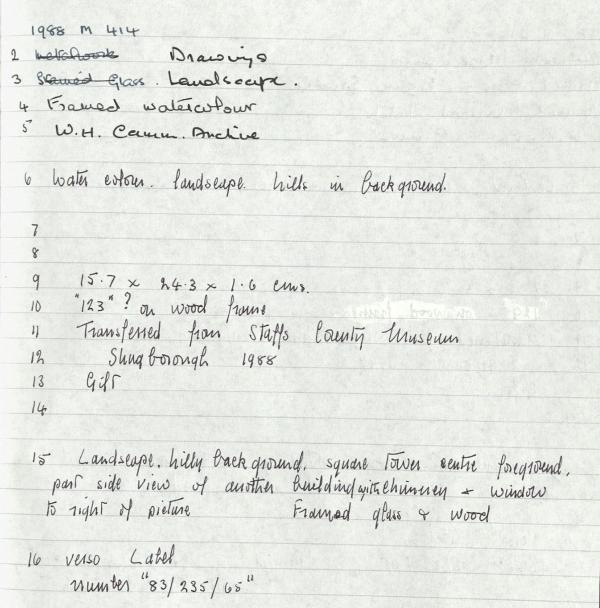 1988 M 414
2 Drawings
3 Stained Glass. Landscape.
4 Framed watercolour
5 W.H. Camm. Archive
6 water colour. landscape. hills in background.
7
8
9 15.7 x 24.3 x 1.6 cms.
10 "123" ? on wood frame
11 Transferred from Staffs County Museum
12 Shugborough 1988
13 Gift
14
15 Landscape. hilly background. square Tower centre foreground.
part side view of another building with chimney + window
to right of picture Framed glass & wood
16 verso Label
number "83/235/65"